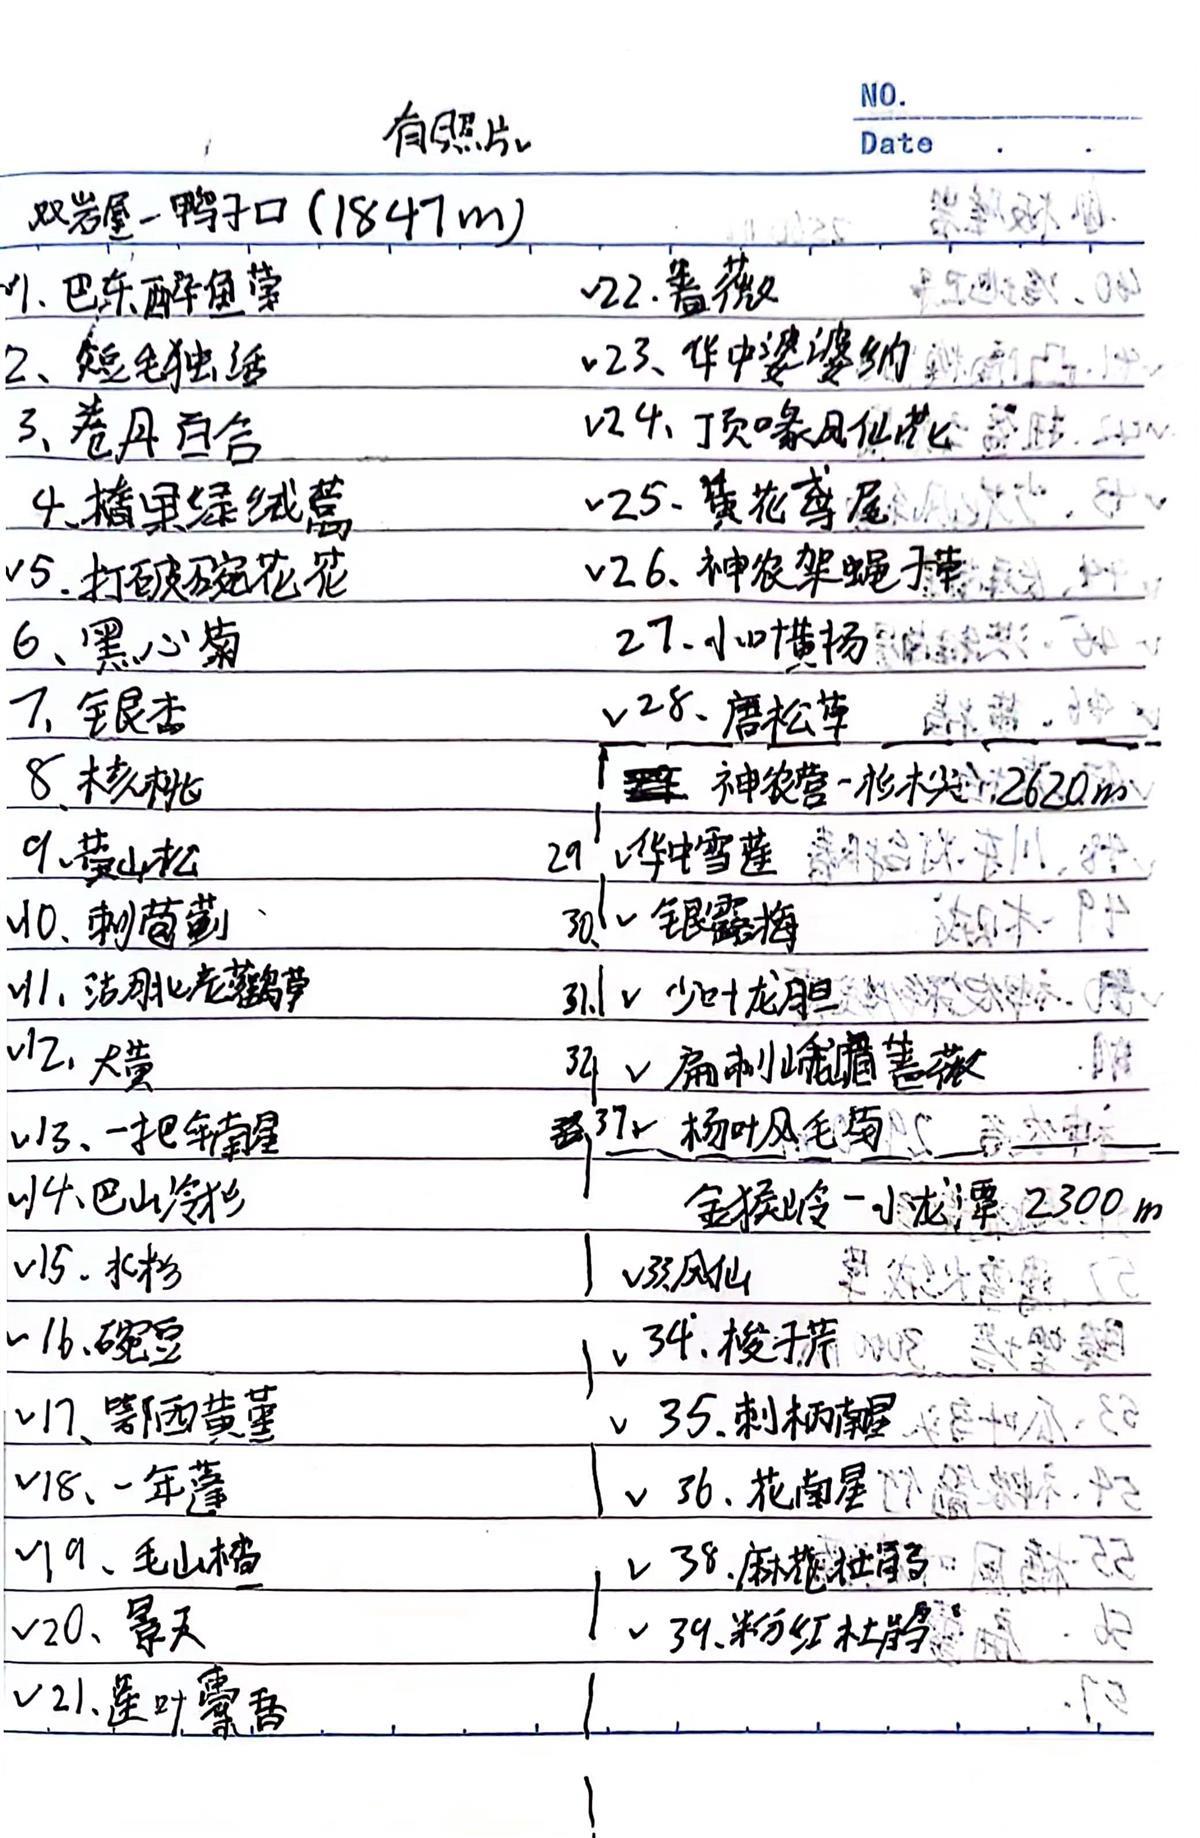 NO.
有照片√
Date
双岩屋一鸭子口(1847m)
√1、巴东醉鱼草
2、短毛独活
3、卷丹百合
4、橢果绿绒蒿
√5.打破碗花花
6、黑心菊
7、银杏
8、核桃
9、华山松
√10、刺苞蓟
√11、沽月北老鹳草
√12、大黄
√13、一把伞南星
√14.巴山冷杉
√15.水杉
√16.碗豆
√17、鄂西黄堇
√18、一年蓬
√19、毛山楂
√20、景天
√21、莲叶橐吾
√22.蔷薇
√23、华中婆婆纳
√24、顶喙凤仙花
√25.黄花鸢尾
√26、神农架蝇子草
27.小叶黄杨
√28、唐松草
神农营一杉木尖 2620m
29 √华中雪莲
30、√银露梅
31.√少叶龙胆
32 √扁刺峨眉蔷薇
37√杨叶风毛菊
金猴岭一小龙潭 2300m
√33凤仙
√34.梭子芹
√35.刺柄南星
√36、花南星
√38.麻花杜鹃
√39.粉红杜鹃